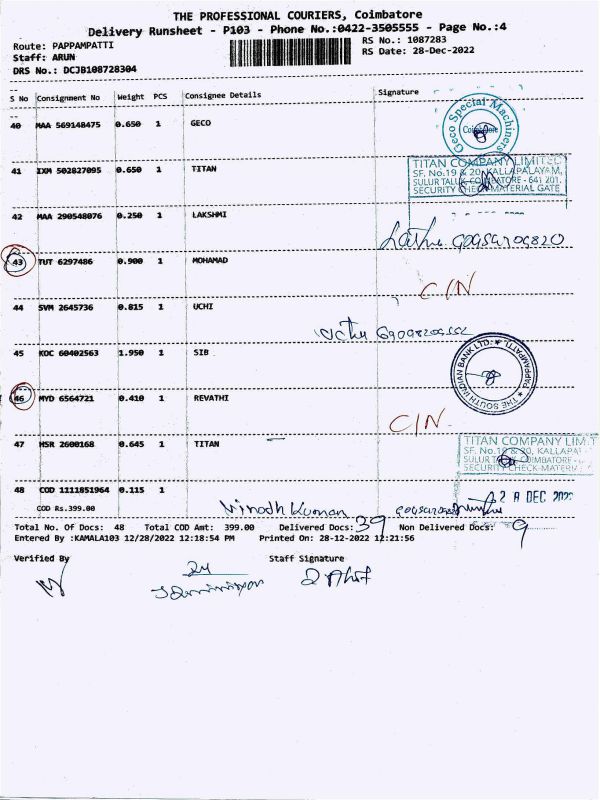 THE PROFESSIONAL COURIERS, Coimbatore
Delivery Runsheet - P103 - Phone No.:0422-3505555 - Page No.:4
Route: PAPPAMPATTI
Staff: ARUN
DRS No.: DCJB108728304
RS No.: 1087283
RS Date: 28-Dec-2022
S No Consignment No Weight PCS Consignee Details Signature
40 MAA 569148475 0.650 1 GECO
Geco Special Machiners Coimbatore
41 IXM 502827095 0.650 1 TITAN
TITAN COMPANY LIMITED
SF. No:19 & 20, KALLAPALAYAM,
SULUR TALUK, COIMBATORE - 641 201.
SECURITY CHECK-MATERIAL GATE
42 MAA 290548076 0.250 1 LAKSHMI
43 TUT 6297486 0.900 1 MOHAMAD
C/N
44 SVM 2645736 0.815 1 UCHI
45 KOC 60402563 1.950 1 SIB
THE SOUTH INDIAN BANK LTD. PAPPAMPATTI
46 MYD 6564721 0.410 1 REVATHI
C/N
47 HSR 2600168 0.645 1 TITAN
TITAN COMPANY LIM
SF. No.19 & 20, KALLAPA
SULUR TALUK, COIMBATORE
SECURITY CHECK-MATERI
48 COD 1111851964 0.115 1
COD Rs.399.00
Vinodh Kumar
2 8 DEC 202
Total No. Of Docs: 48 Total COD Amt: 399.00 Delivered Docs: 39 Non Delivered Docs: 9
Entered By :KAMALA103 12/28/2022 12:18:54 PM Printed On: 28-12-2022 12:21:56
Verified By Staff Signature